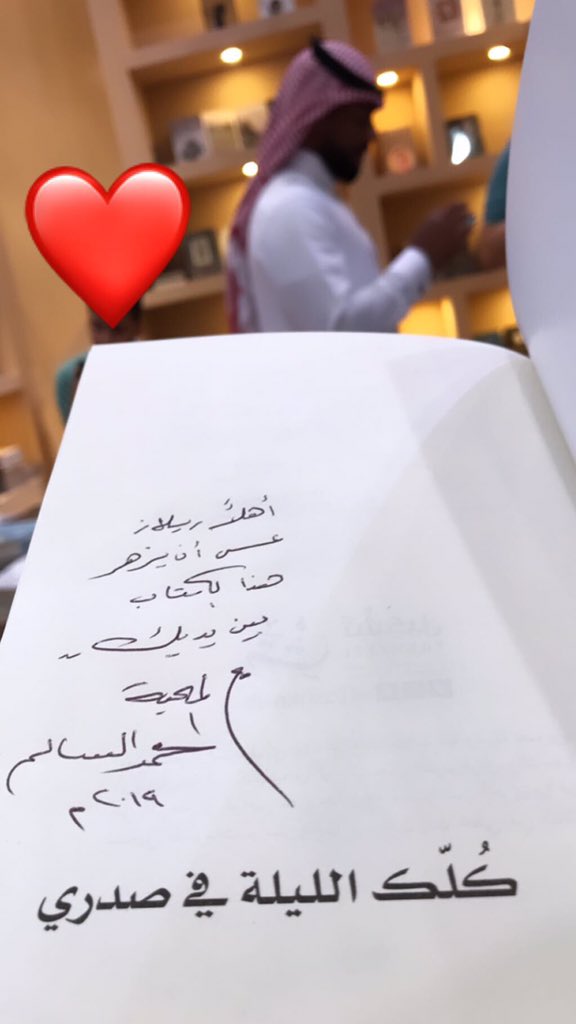 أهلاً ريلاز
عسى أن يزهر
هذا الكتاب
بين يديك ..
مع المحبة
أحمد السالم
٢٠١٩م
كُلّك الليلة في صدري